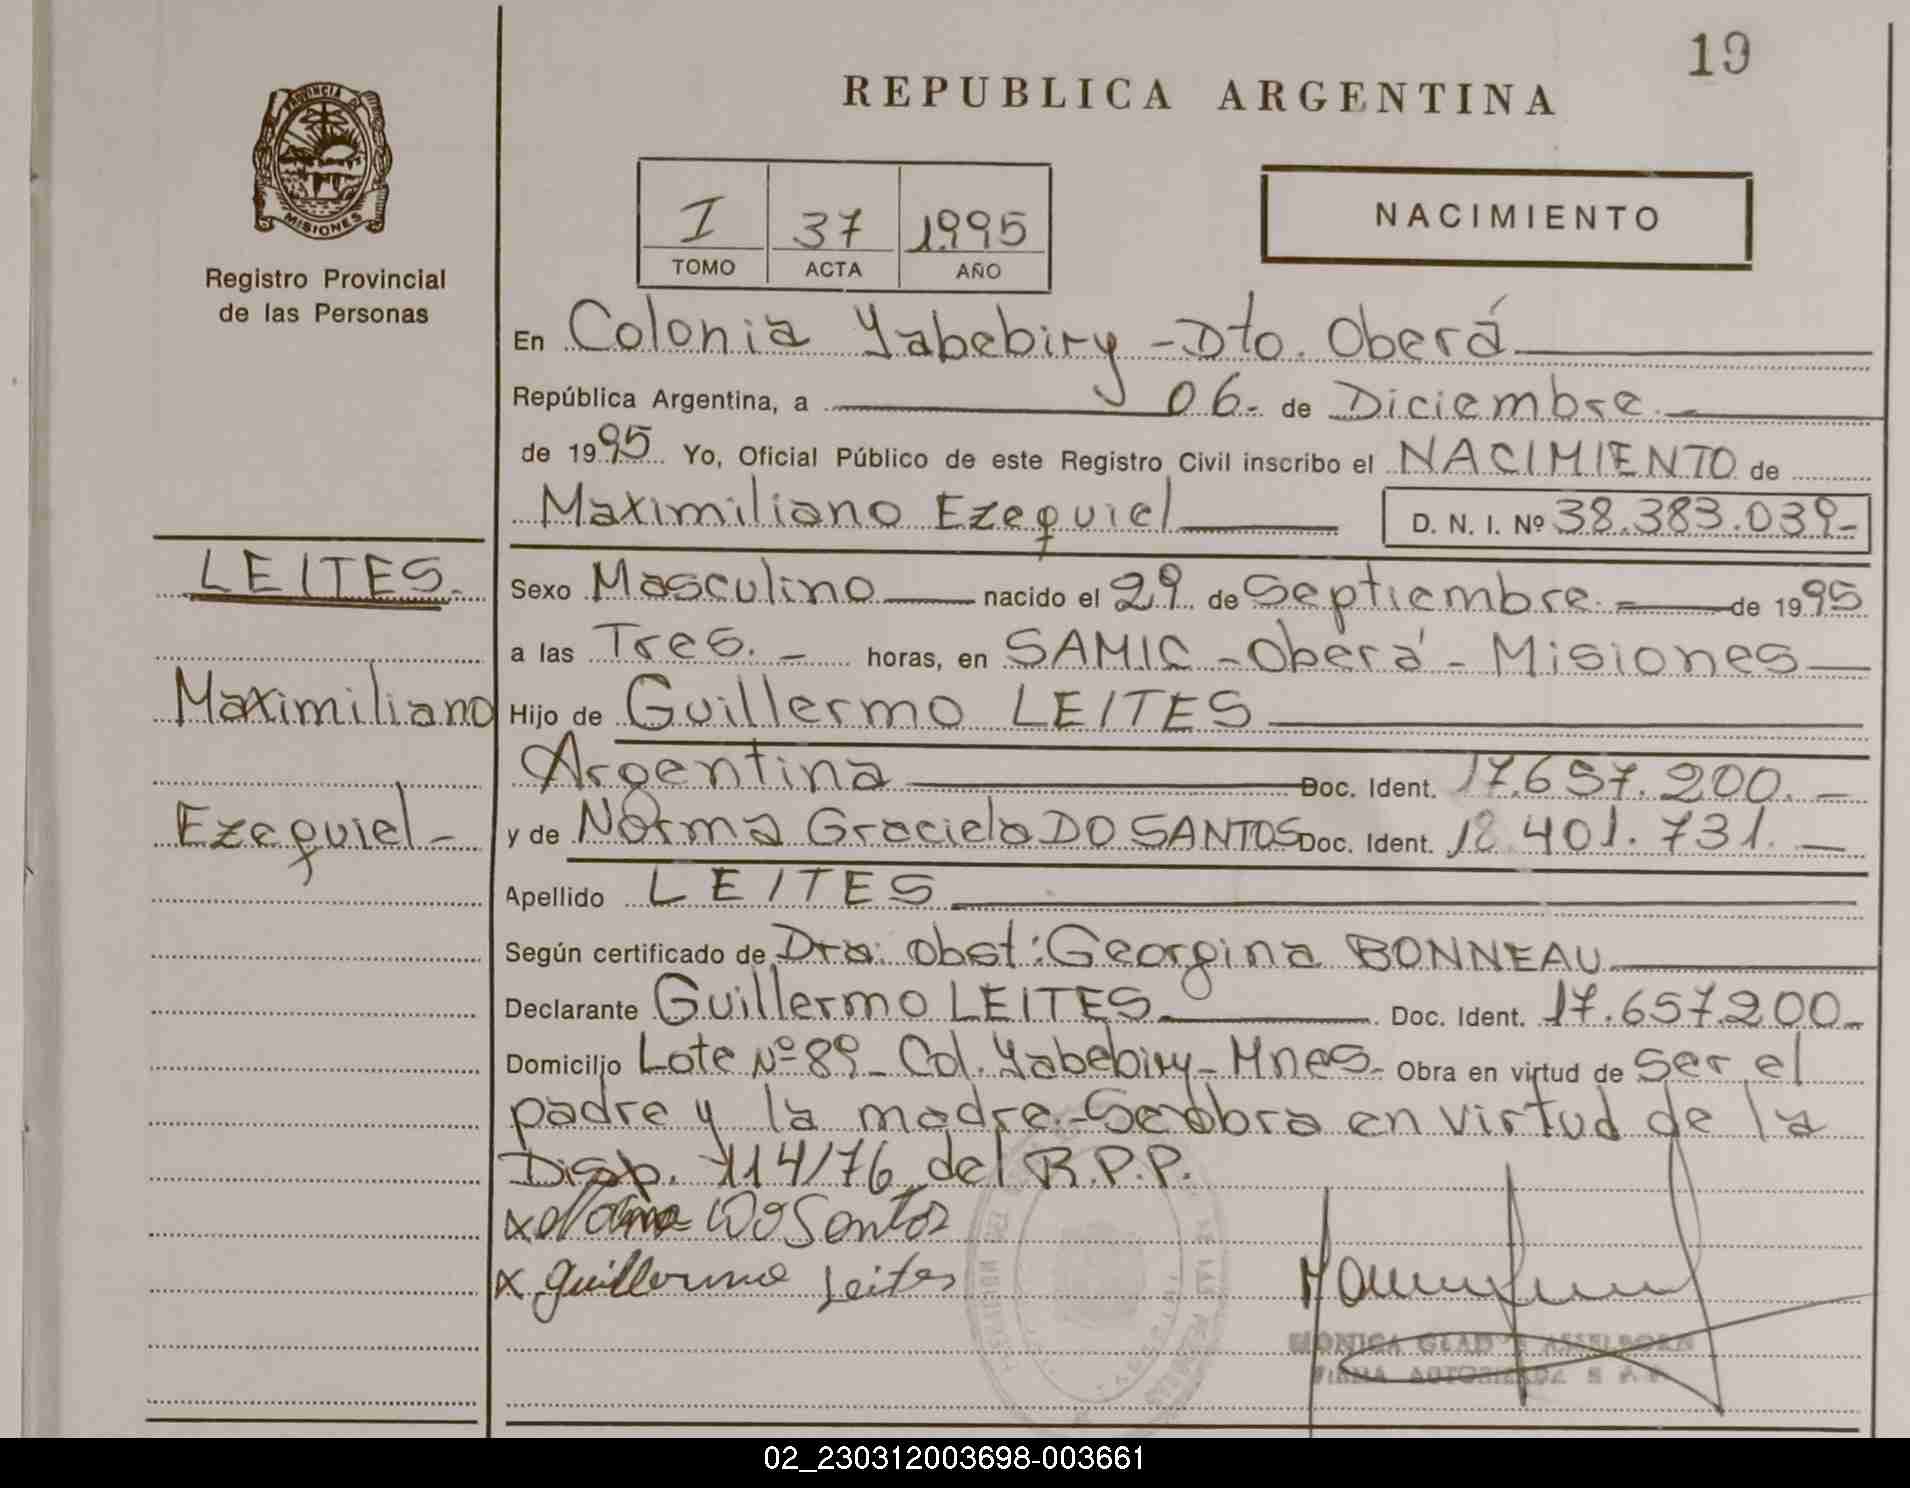 19
REPUBLICA ARGENTINA
PROVINCIA DE
MISIONES
Registro Provincial
de las Personas
I 37 1995
TOMO ACTA AÑO
NACIMIENTO
En Colonia Yabebiry - Dto. Oberá
República Argentina, a 06 - de Diciembre.-
de 1995 Yo, Oficial Público de este Registro Civil inscribo el NACIMIENTO de
Maximiliano Ezequiel D. N. I. Nº 38.383.039-
LEITES.
Sexo Masculino nacido el 29 de Septiembre.- de 1995
a las Tres. - horas, en SAMIC - Oberá - Misiones
Maximiliano
Hijo de Guillermo LEITES
Argentina Doc. Ident. 17.657.200. -
Ezequiel -
y de Norma Graciela DO SANTOS Doc. Ident. 18.401.731. -
Apellido LEITES
Según certificado de Dra: obst: Georgina BONNEAU
Declarante Guillermo LEITES. Doc. Ident. 17.657.200-
Domicilio Lote Nº 89 - Col. Yabebiry - Mnes. Obra en virtud de ser el
padre y la madre.- Se obra en virtud de la
Disp. 114/76 del R.P.P.
x Norma Do Santos
x Guillermo Leites
MONICA GLAD ASSELBORN
FIRMA AUTORIZADA R.P.P.
02_230312003698-003661